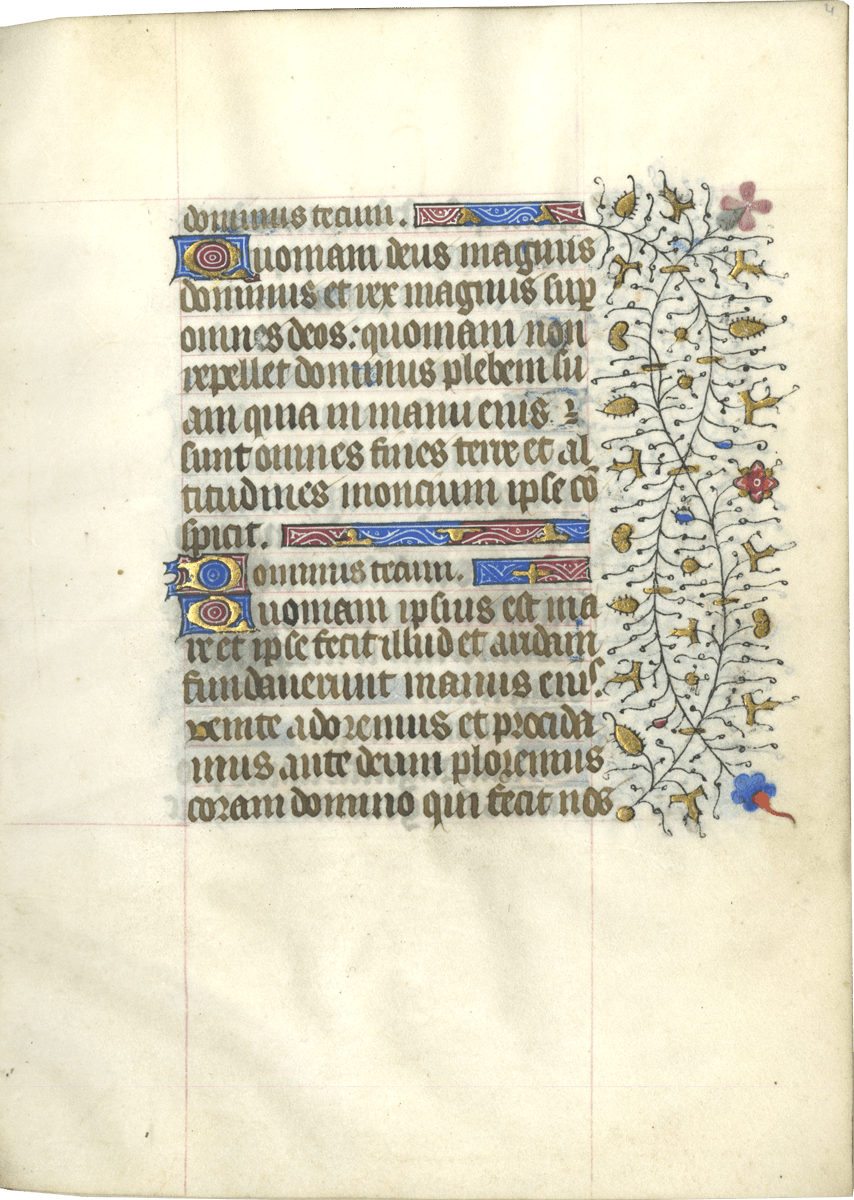 4
dominus tecum.
Quoniam deus magnus
dominus et rex magnus sup
omnes deos: quoniam non
repellet dominus plebem su
am quia in manu eius
sunt omnes fines terre et al
titudines moncium ipse cō
spicit.
Dominus tecum.
Quoniam ipsius est ma
re et ipse fecit illud et aridam
fundauerunt manus eius.
venite adoremus et procida
mus ante deum ploremus
coram domino qui fecit nos